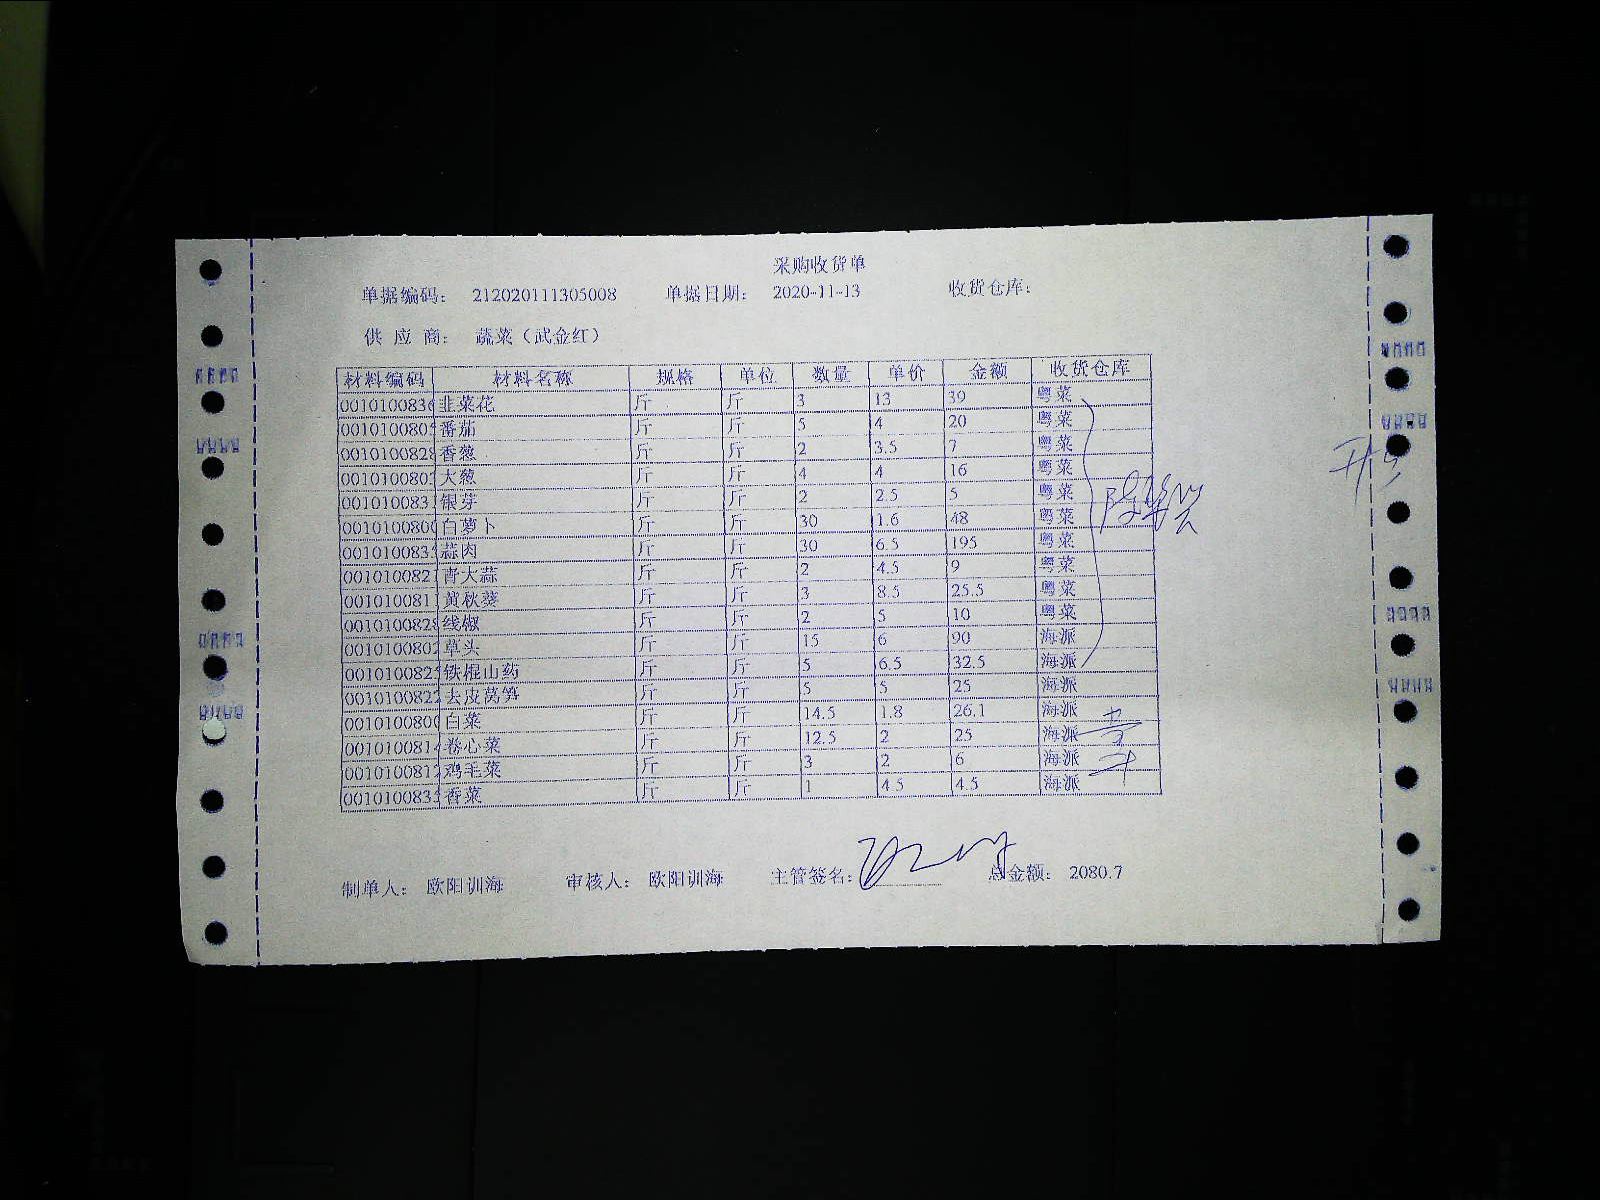 采购收货单
单据编码： 212020111305008 单据日期： 2020-11-13 收货仓库：
供 应 商： 蔬菜（武金红）
材料编码 材料名称 规格 单位 数量 单价 金额 收货仓库
001010083 韭菜花 斤 斤 3 13 39 粤菜
001010080 番茄 斤 斤 5 4 20 粤菜
001010082 香葱 斤 斤 2 3.5 7 粤菜
001010080 大葱 斤 斤 4 4 16 粤菜
001010083 银芽 斤 斤 2 2.5 5 粤菜
001010080 白萝卜 斤 斤 30 1.6 48 粤菜
001010083 蒜肉 斤 斤 30 6.5 195 粤菜
001010082 青大蒜 斤 斤 2 4.5 9 粤菜
001010081 黄秋葵 斤 斤 3 8.5 25.5 粤菜
001010082 线椒 斤 斤 2 5 10 粤菜
001010080 草头 斤 斤 15 6 90 海派
001010082 铁棍山药 斤 斤 5 6.5 32.5 海派
001010082 去皮莴笋 斤 斤 5 5 25 海派
001010080 白菜 斤 斤 14.5 1.8 26.1 海派
001010081 卷心菜 斤 斤 12.5 2 25 海派
001010081 鸡毛菜 斤 斤 3 2 6 海派
001010083 香菜 斤 斤 1 4.5 4.5 海派
制单人： 欧阳训海 审核人： 欧阳训海 主管签名： 总金额： 2080.7